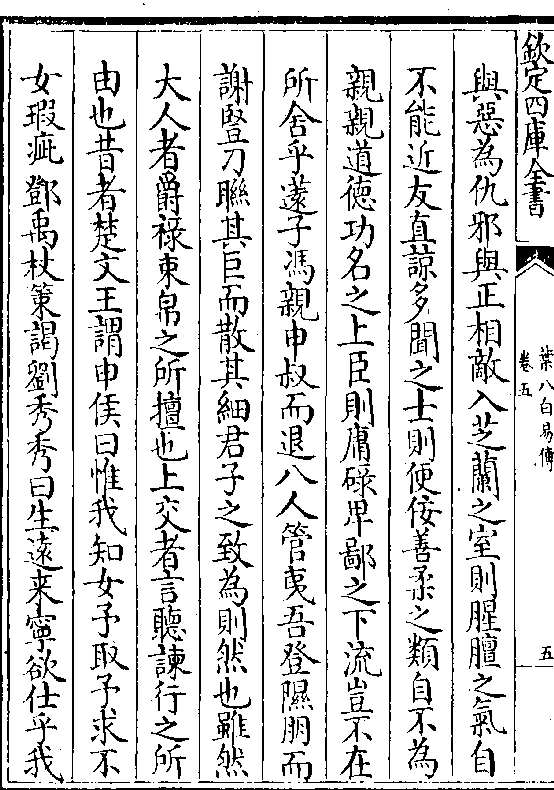 欽定四庫全書
葉八白易傳
卷五
五
與惡為仇邪與正相敵入芝蘭之室則腥膻之氣自
不能近友直諒多聞之士則便佞善柔之類自不為
親親道徳功名之上臣則庸碌卑鄙之下流豈不在
所舍乎薳子馮親申叔而退八人管夷吾登隰朋而
謝豎刀聮其巨而散其細君子之致為則然也雖然
大人者爵禄束帛之所擅也上交者言聽諫行之所
由也昔者楚文王謂申侯曰惟我知女予取予求不
女瑕疵鄧禹杖策謁劉秀秀曰生逺来寧欲仕乎我